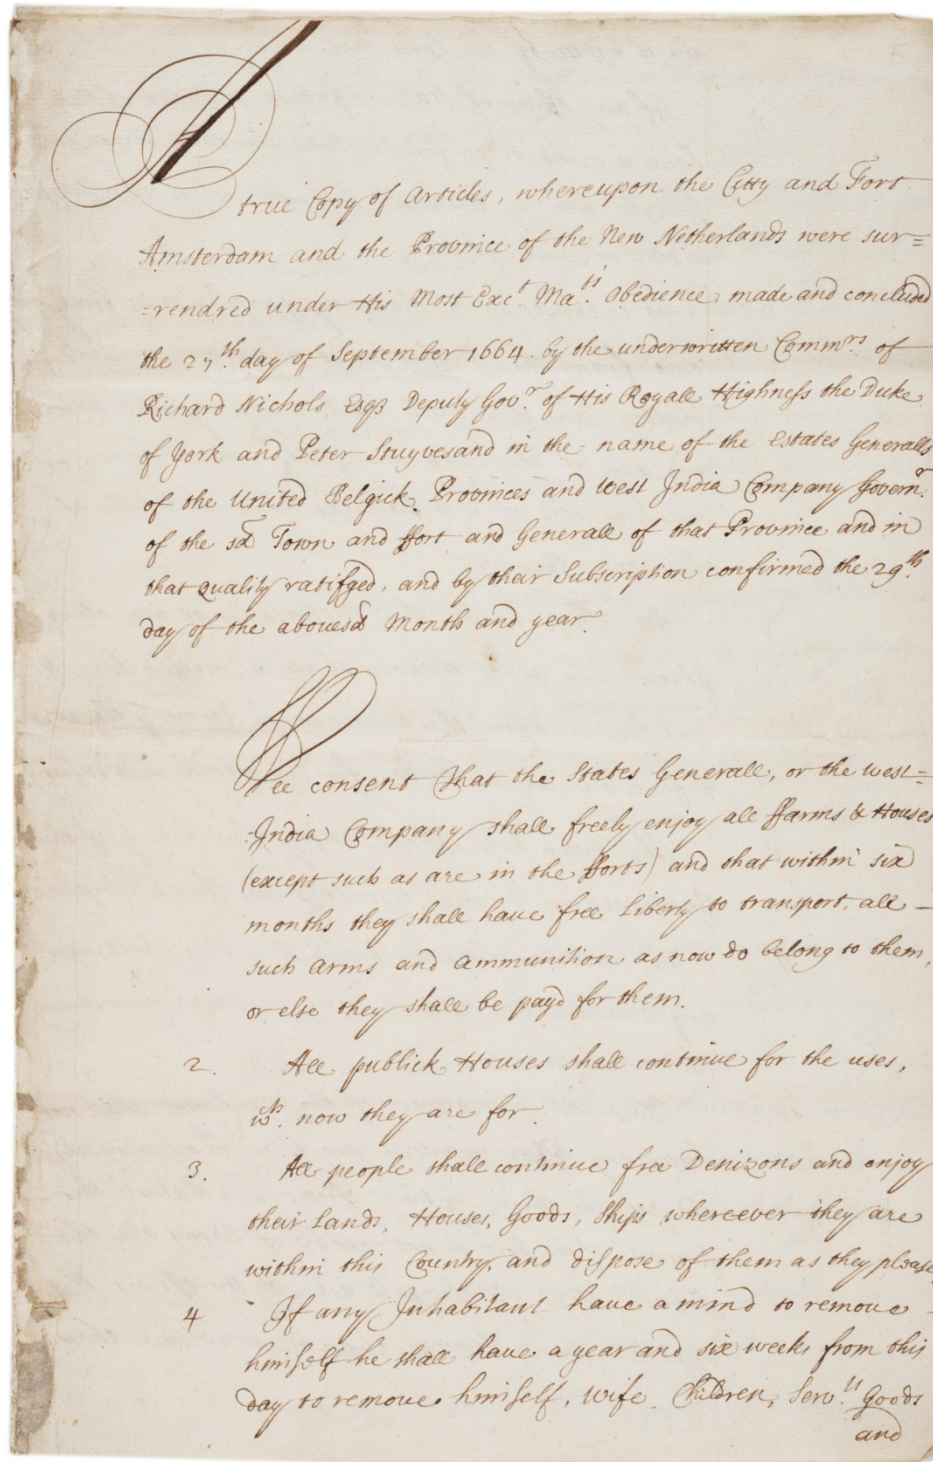 A
true Copy of Articles, whereupon the Citty and Fort
Amsterdam and the Province of the New Netherlands were sur=
=rendred under His Most Exct. Mats. Obedience, made and concluded
the 27th. day of September 1664. by the underwritten Commrs. of
Richard Nichols Esqr Deputy Govr. of His Royall Highness the Duke
of York and Peter Stuyvesand in the name of the Estates Generalls
of the United Belgick Provinces and West India Company Governr.
of the sd Town and ffort and Generall of that Province and in
that quality ratifyed, and by their Subscription confirmed the 29th.
day of the abovesd Month and year.
Wee consent That the States Generall, or the west=
India Company shall freely enjoy all ffarms & Houses
(except such as are in the fforts) and that within six
months they shall have free liberty to transport all
such Arms and Ammunition as now do belong to them,
or else they shall be payd for them.
2. All publick Houses shall continue for the uses,
wch. now they are for.
3. All people shall continue free Denizons and enjoy
their Lands, Houses, Goods, Ships whereever they are
within this Country, and dispose of them as they please
4 If any Inhabitant have a mind to remove
himself he shall have a year and six weeks from this
day to remove himself, wife, Children, Servts. Goods
and